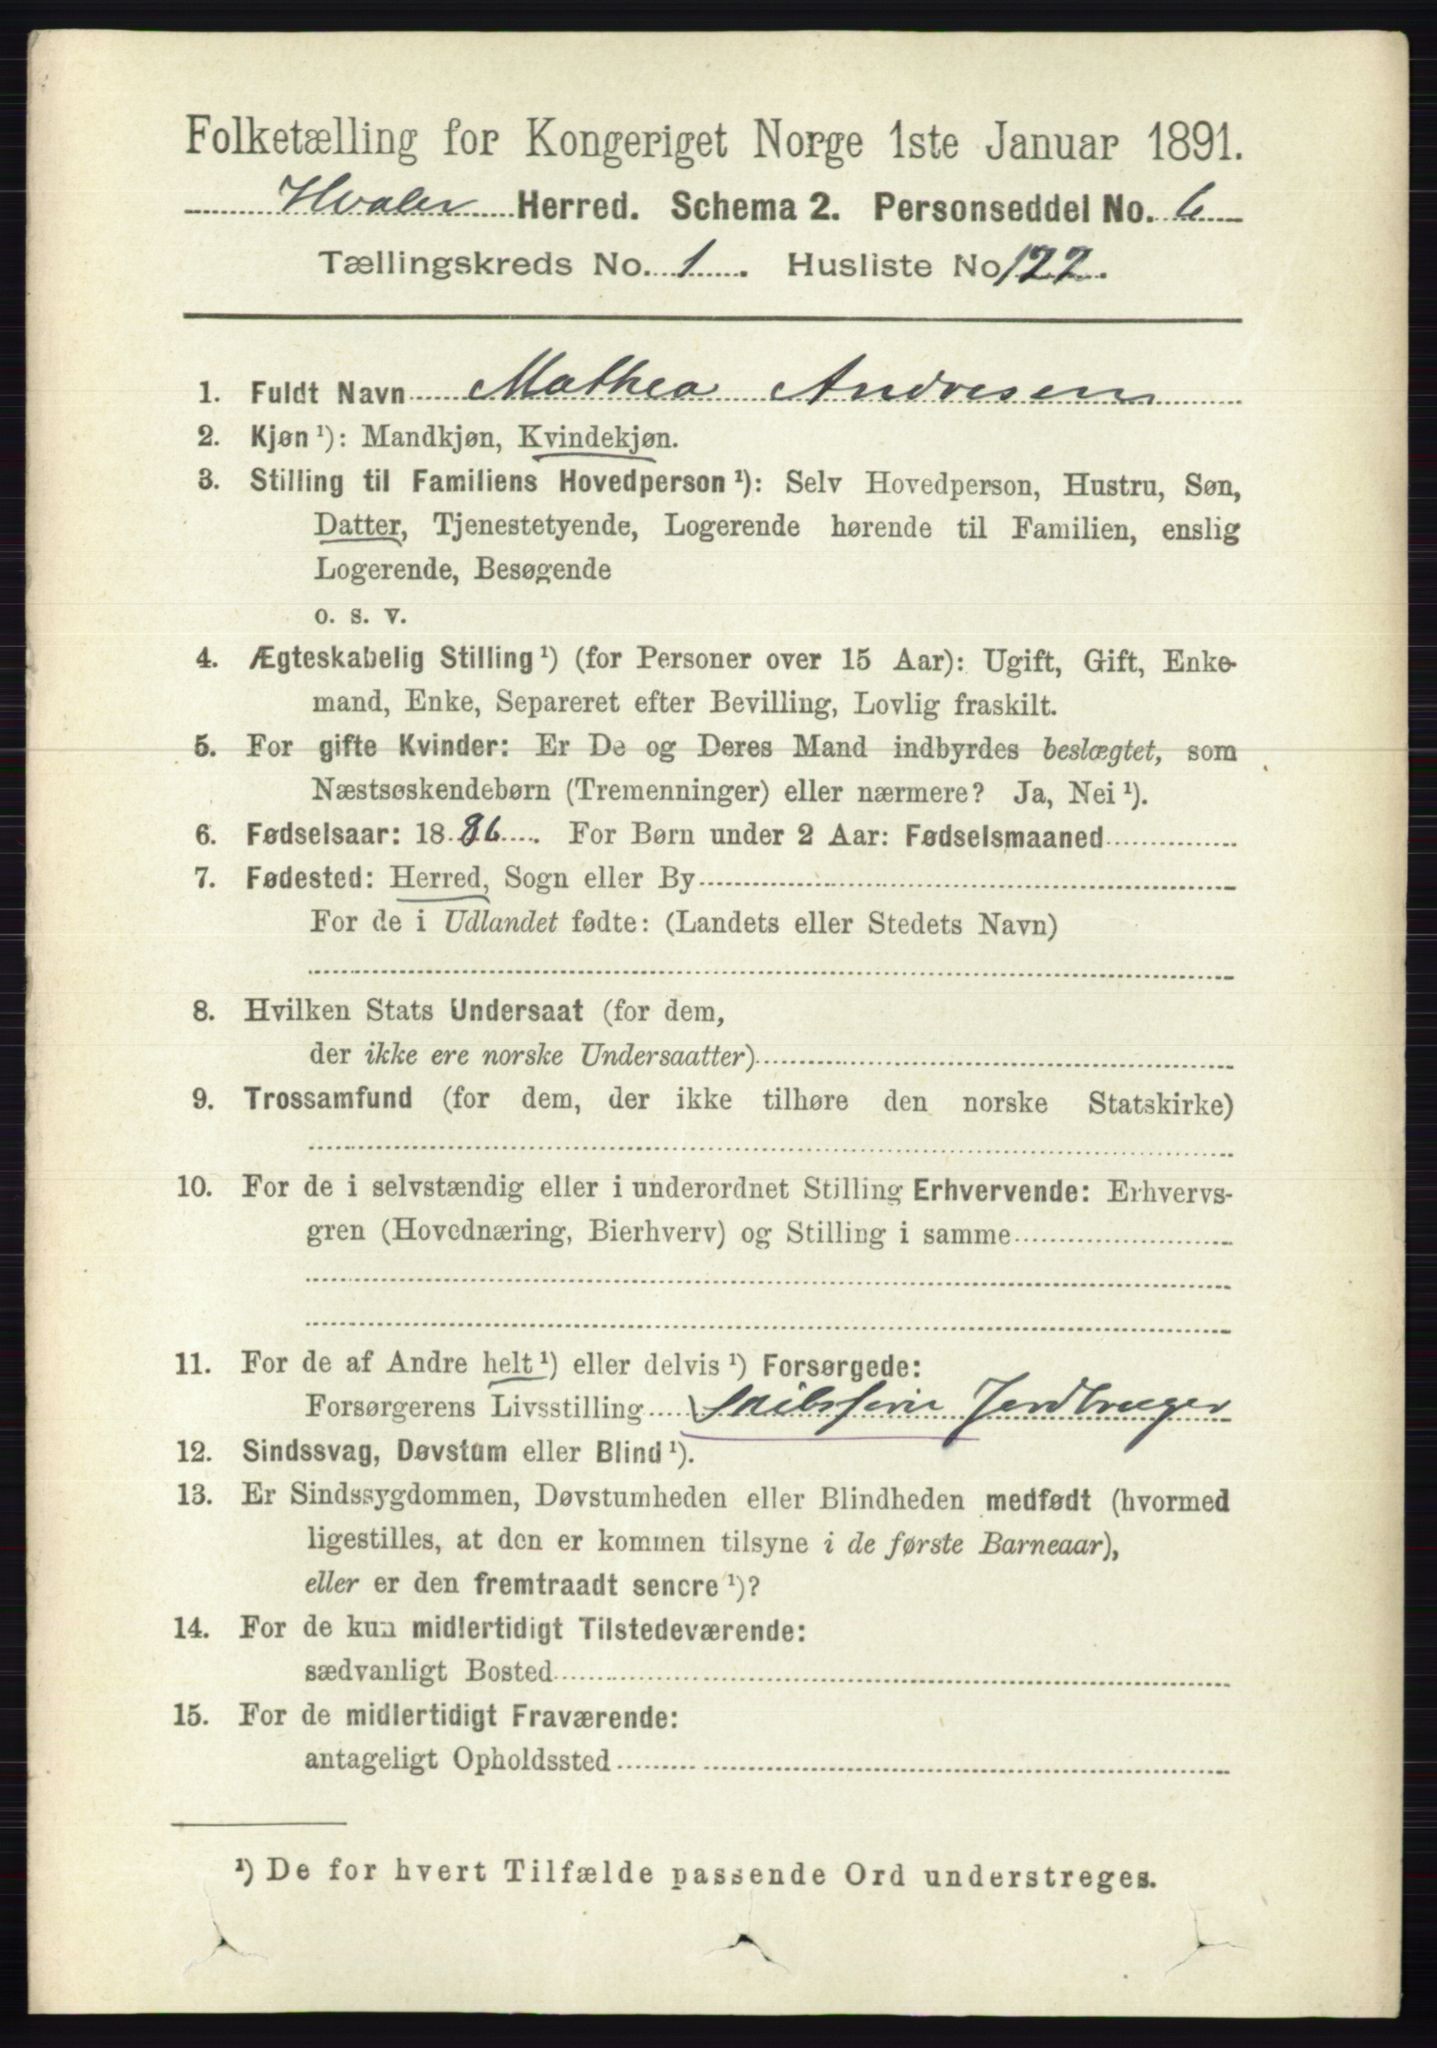 Folketælling for Kongeriget Norge 1ste Januar 1891.
Hvaler Herred. Schema 2. Personseddel No. 6
Tællingskreds No. 1. Husliste No 122.
1. Fuldt Navn Mathea Andresen
2. Kjøn ¹): Mandkjøn, Kvindekjøn.
3. Stilling til Familiens Hovedperson ¹): Selv Hovedperson, Hustru, Søn,
Datter, Tjenestetyende, Logerende hørende til Familien, enslig
Logerende, Besøgende
o. s. v.
4. Ægteskabelig Stilling ¹) (for Personer over 15 Aar): Ugift, Gift, Enke-
mand, Enke, Separeret efter Bevilling, Lovlig fraskilt.
5. For gifte Kvinder: Er De og Deres Mand indbyrdes beslægtet, som
Næstsøskendebørn (Tremenninger) eller nærmere? Ja, Nei ¹).
6. Fødselsaar: 1886. For Børn under 2 Aar: Fødselsmaaned
7. Fødested: Herred, Sogn eller By
For de i Udlandet fødte: (Landets eller Stedets Navn)
8. Hvilken Stats Undersaat (for dem,
der ikke ere norske Undersaatter)
9. Trossamfund (for dem, der ikke tilhøre den norske Statskirke)
10. For de i selvstændig eller i underordnet Stilling Erhvervende: Erhvervs-
gren (Hovednæring, Bierhverv) og Stilling i samme
11. For de af Andre helt ¹) eller delvis ¹) Forsørgede:
Forsørgerens Livsstilling Jordbruger
12. Sindssvag, Døvstum eller Blind ¹).
13. Er Sindssygdommen, Døvstumheden eller Blindheden medfødt (hvormed
ligestilles, at den er kommen tilsyne i de første Barneaar),
eller er den fremtraadt senere ¹)?
14. For de kun midlertidigt Tilstedeværende:
sædvanligt Bosted
15. For de midlertidigt Fraværende:
antageligt Opholdssted
¹) De for hvert Tilfælde passende Ord understreges.